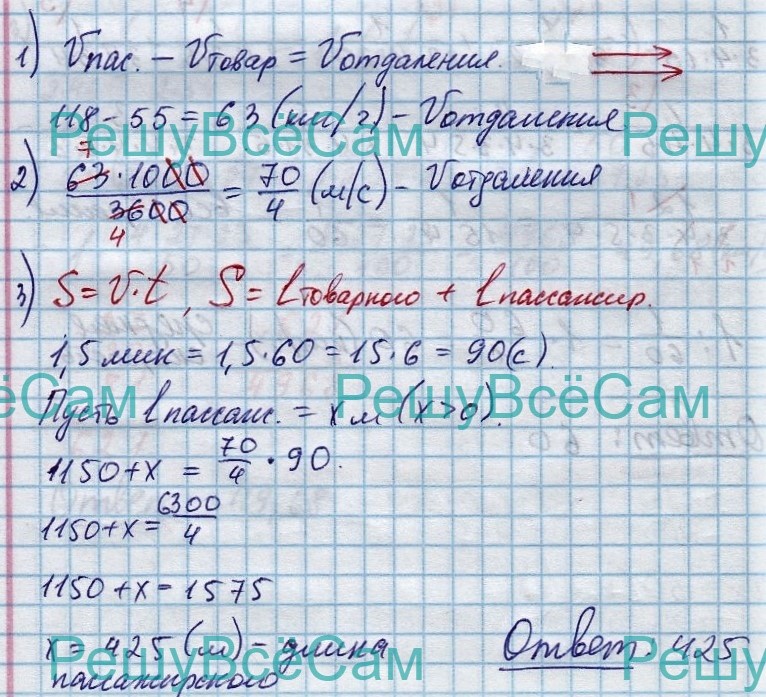 1) Vпас. – Vтовар = Vотдаления.
118 - 55 = 63 (км/г) – Vотдаления
РешуВсёСам РешуВсёСам
7
2) 63·1000/3600 = 70/4 (м/с) – Vотдаления
4
3) S = V·t, S = lтоварного + lпассажир.
1,5 мин = 1,5·60 = 15·6 = 90(с).
РешуВсёСам РешуВсёСам
Пусть lпассаж. = х м (х>0).
1150+х = 70/4 · 90.
1150+х = 6300/4
1150+х = 1575
х = 425 (м) – длина
пассажирского
Ответ: 425
РешуВсёСам РешуВсёСам